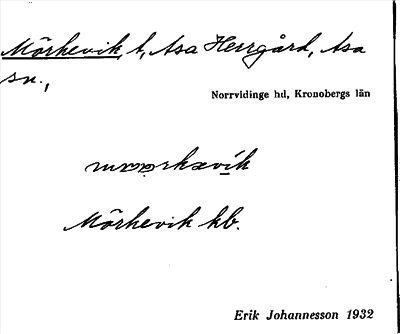 Mörhevik, t, Asa Herrgård, Asa
sn.,
Norrvidinge hd, Kronobergs län
Mörhevik kb.
Erik Johannesson 1932